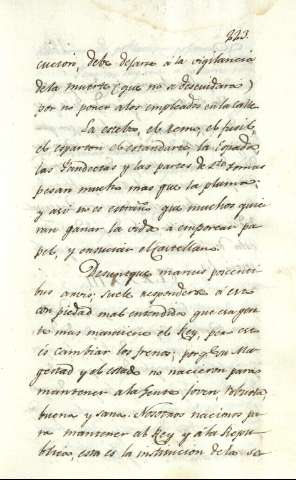 223.
cucion, debe dejarse á la vigilancia
dela muerte (que no se descuidara)
por no poner alos empleados en la calle.
La esteba, el remo, el fusil,
el espartón el estandarte, la Espada,
las Vandoleras y las partes de Sto. tomas
pesan mucho mas que la pluma;
y asi no es estraño que muchos quie
ran ganar la vida á emporcar pa
pel, y ensuciar el Castellano.
manus
bus anvio; suele responderse á esto
con piedad mal entendida que esa gen
te mas mantiene el Rey, pero esto
es cambiar los frenos; porq.e Su Ma
gestad y el estado no nacieron para
mantener ala gente joven, robusta
buena y sana. Nosotros nacimos pa
ra mantener al Rey y á la Repu
blica, esta es la institucion de las so